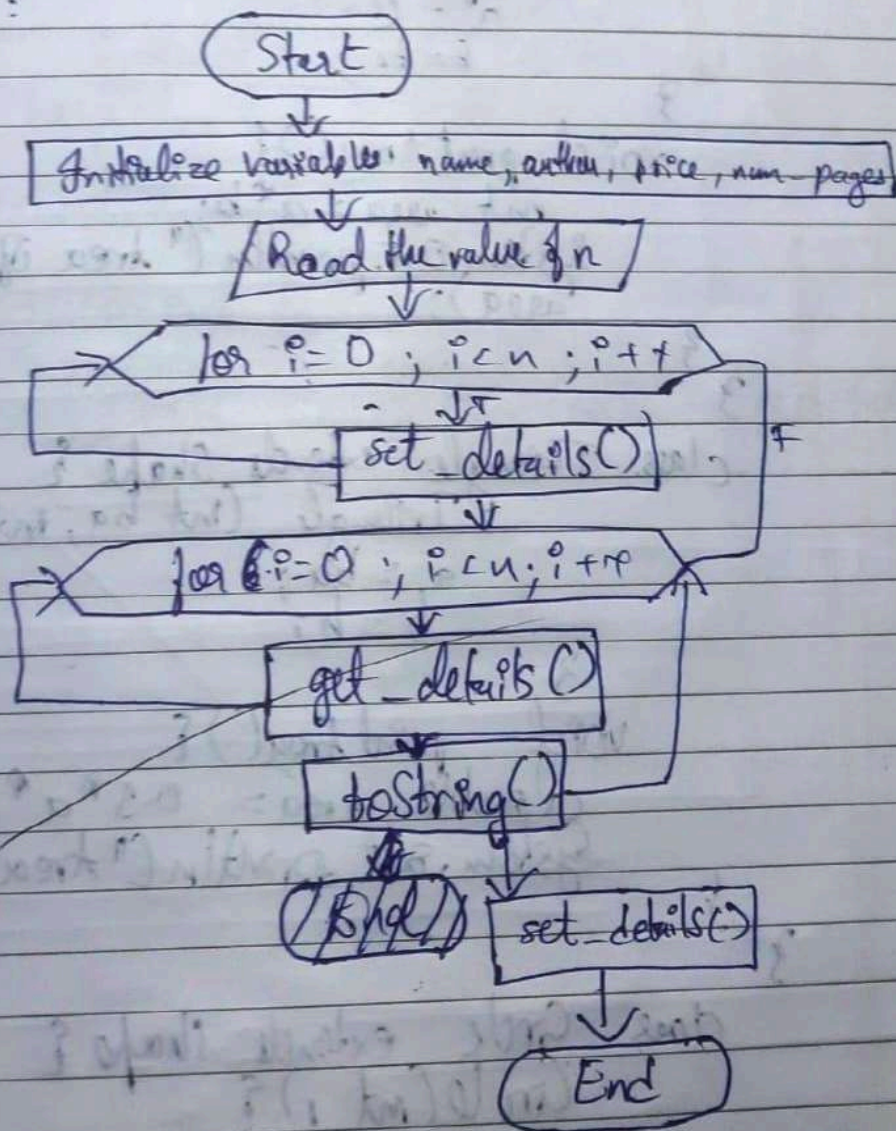 Start
Initialize variables: name, author, price, num_pages
Read the value of n
for i=0 ; i<n ; i++
T
F
set_details()
for i=0 ; i<n ; i++
get_details()
toString()
set_details()
End